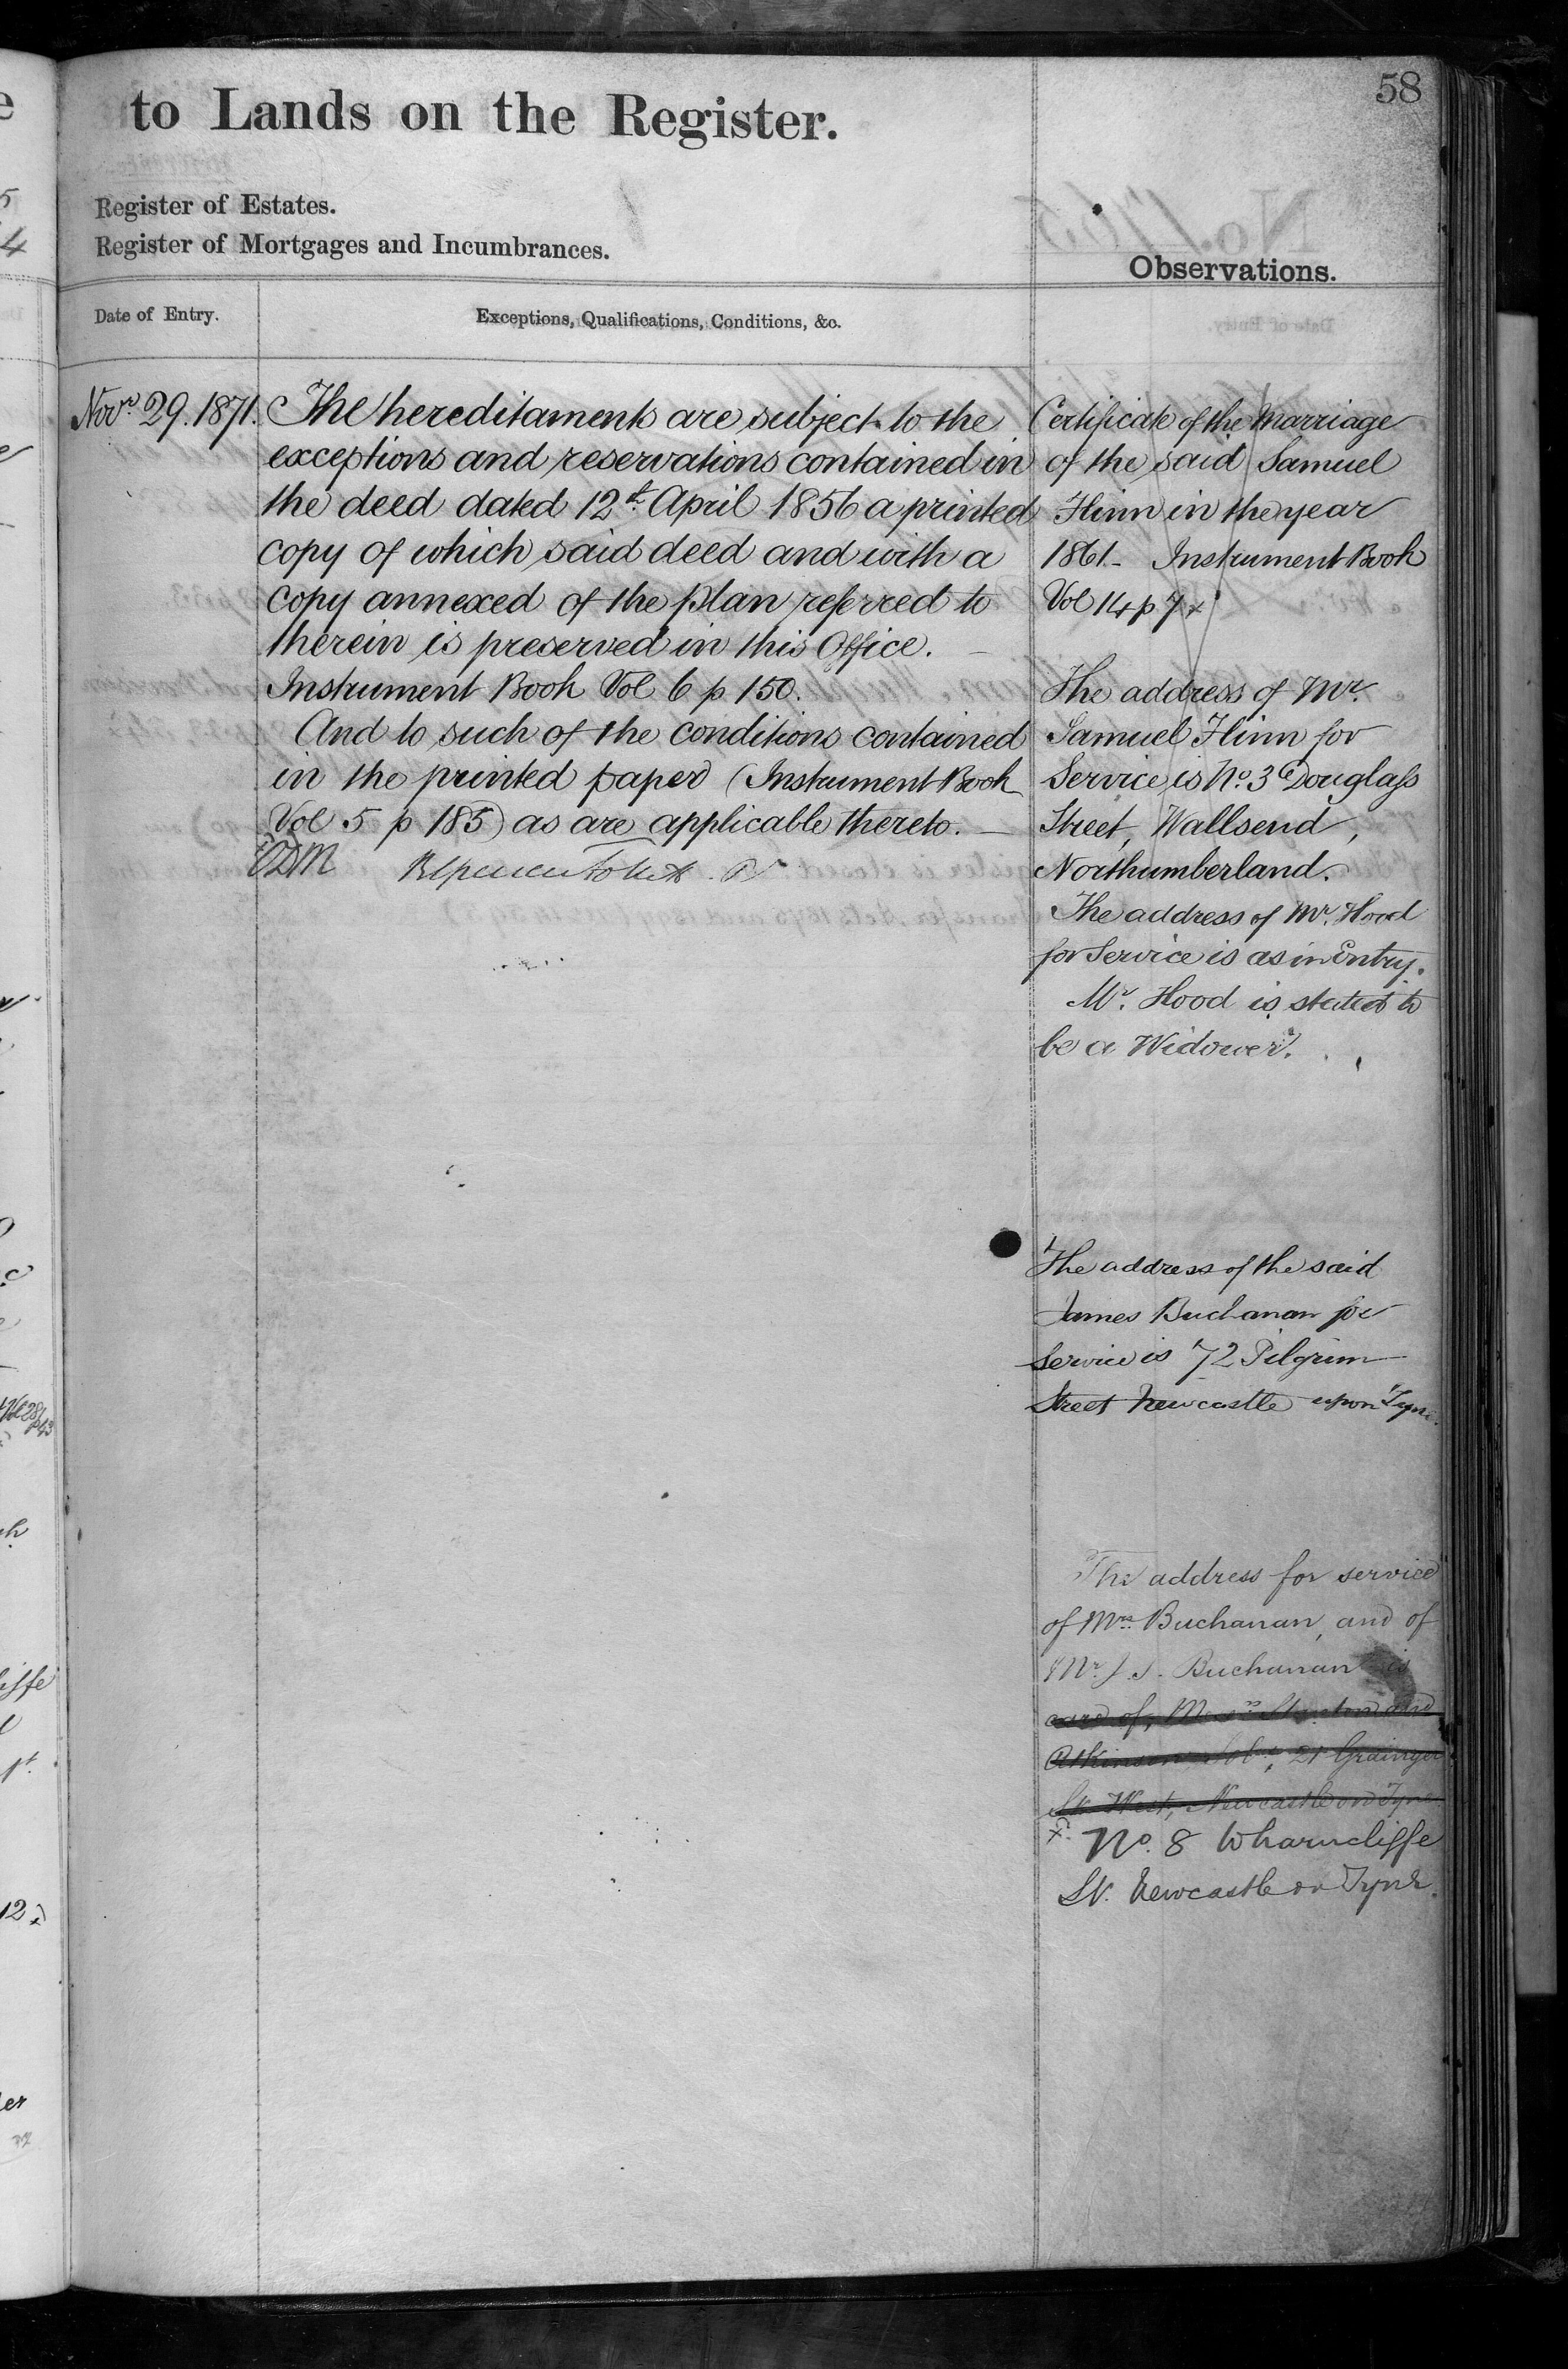 58
to Lands on the Register.
Register of Estates.
Register of Mortgages and Incumbrances.
Observations.
Date of Entry.
Exceptions, Qualifications, Conditions, &c.
Novr. 29. 1871.
The hereditaments are subject to the
exceptions and reservations contained in
the deed dated 12th. April 1856 a printed
copy of which said deed and with a
copy annexed of the plan referred to
therein is preserved in this Office. —
Instrument Book Vol 6 p 150.
And to such of the conditions contained
in the printed paper (Instrument Book
Vol 5 p 185) as are applicable thereto. —
Certificate of the Marriage
of the said Samuel
Flinn in the year
1861 - Instrument Book
Vol 14 p 7 x
The address of Mr.
Samuel Flinn for
Service is No. 3 Douglass
Street, Wallsend,
Northumberland.
The address of Mr. Hood
for Service is as in Entry.
Mr. Hood is stated to
be a Widower.
The address of the said
James Buchanan for
Service is 72 Pilgrim
Street Newcastle upon Tyne.
The address for service
of Mrs. Buchanan, and of
Mr. J. S. Buchanan is
care of, Messrs and
Atkinson Solrs, 21 Grainger
St. West, Newcastle on Tyne
x. No. 8 Wharncliffe
St. Newcastle on Tyne.